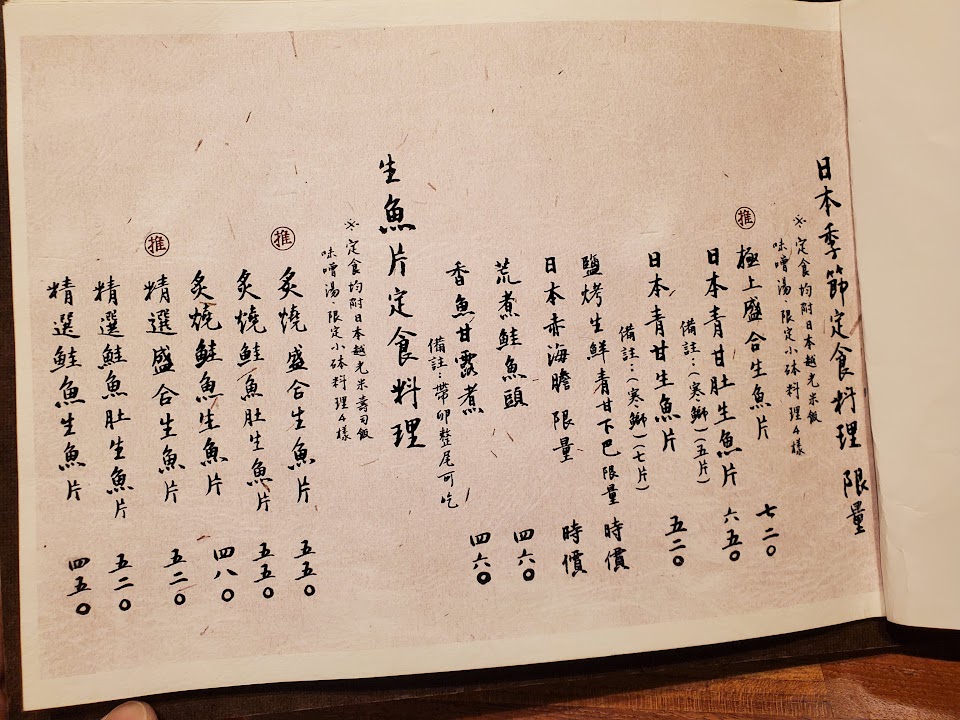 日本季節定食料理 限量
※定食均附日本越光米飯
味噌湯·限定小砵料理4樣
推 極上盛合生魚片 七二〇
日本青甘肚生魚片 六五〇
備註：(寒鰤)(五片)
日本青甘生魚片 五二〇
備註：(寒鰤)(七片)
鹽烤生鮮青甘下巴 限量 時價
日本赤海膽 限量 時價
荒煮鮭魚頭 四六〇
香魚甘露煮 四六〇
備註：帶卵整尾可吃
生魚片定食料理
※定食均附日本越光米壽司飯
味噌湯·限定小砵料理4樣
推 炙燒盛合生魚片 五五〇
炙燒鮭魚肚生魚片 五五〇
炙燒鮭魚生魚片 四八〇
推 精選盛合生魚片 五二〇
精選鮭魚肚生魚片 五二〇
精選鮭魚生魚片 四五〇